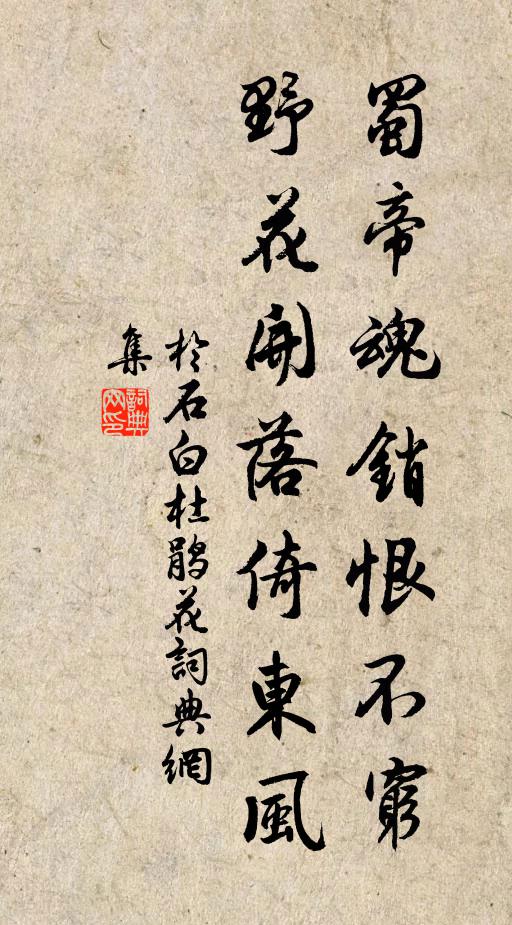 蜀帝魂銷恨不窮
野花開落倚東風
於石白杜鵑花詞典網
集
詞典
网印